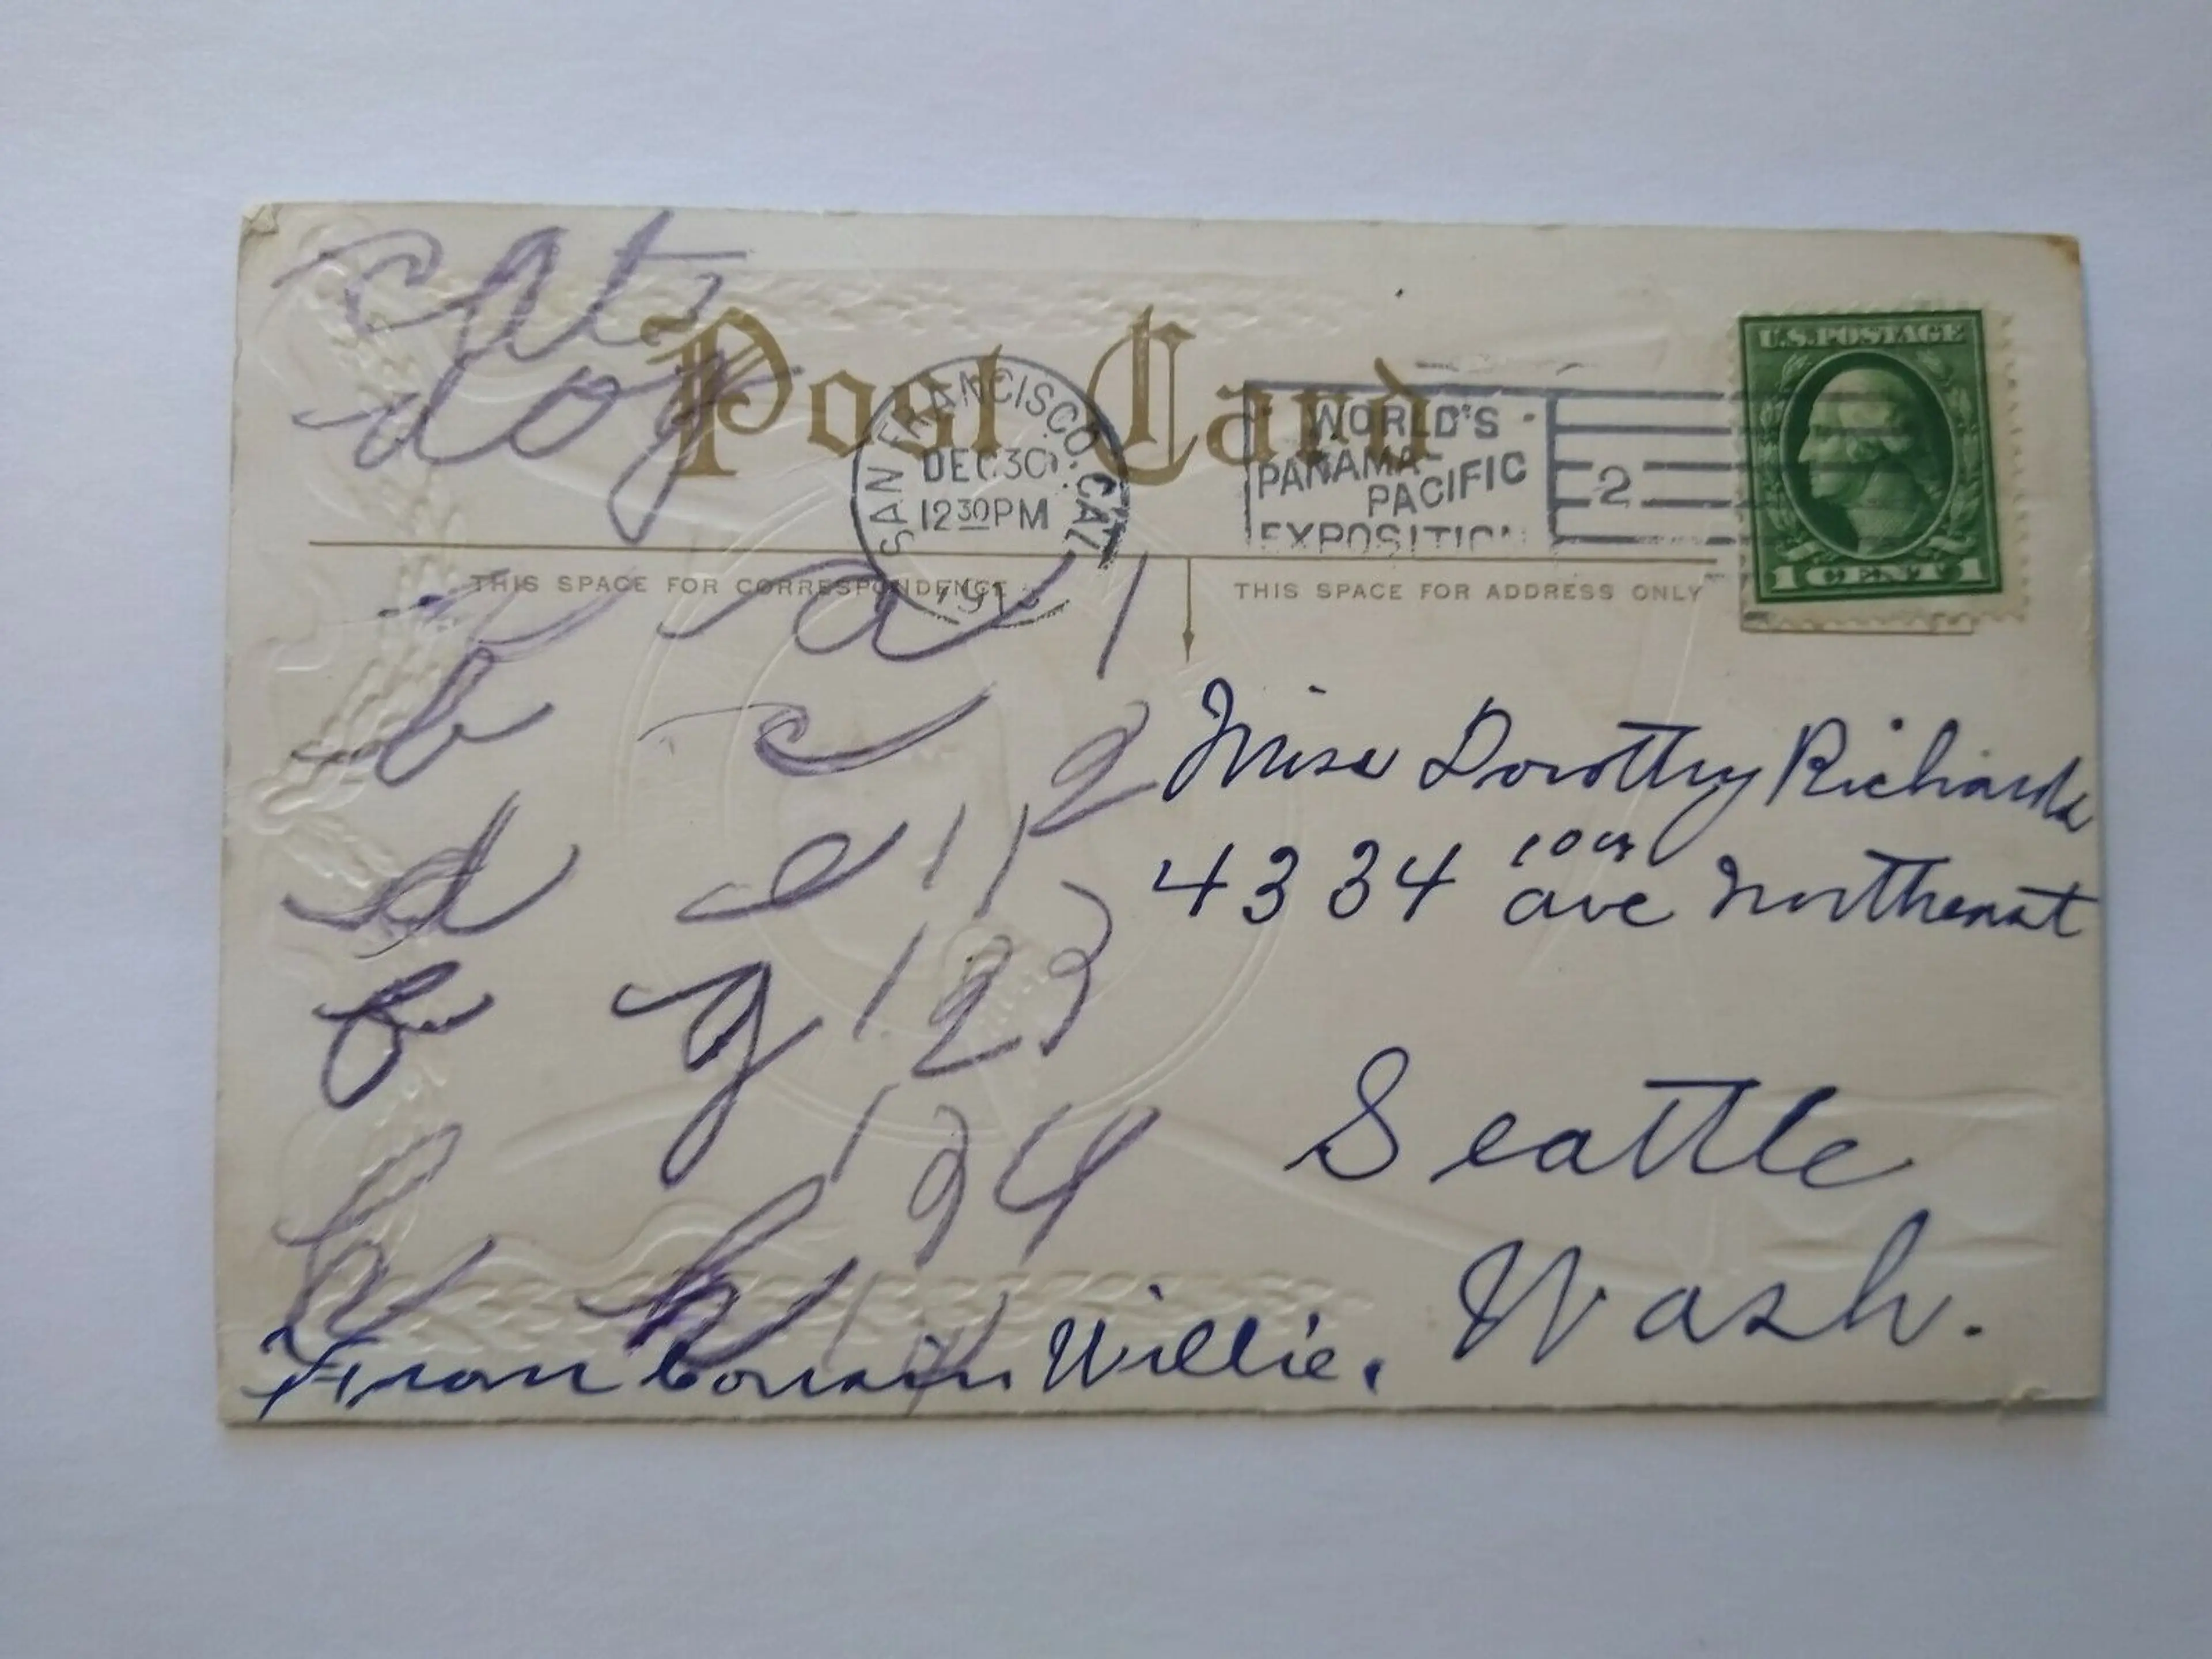 cat
dog
Post Card
SAN FRANCISCO, CAL.
DEC 30
12 30 PM
WORLD'S
PANAMA-
PACIFIC
EXPOSITION
2
U.S. POSTAGE
1 CENT 1
THIS SPACE FOR CORRESPONDENCE
THIS SPACE FOR ADDRESS ONLY
a 1
b c 2
d e 11
f g 123
h h 124
From Cousin Willie.
Miss Dorothy Richards
4334 10th ave Northeast
Seattle
Wash.